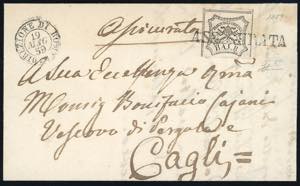 DIREZIONE DI
19
59
Assicurata
BAJ. 8
ASSICURATA
A Sua Eccellenza Rma
Monsig Bonifacio Cajani
Vescovo di Pergola e
Cagli